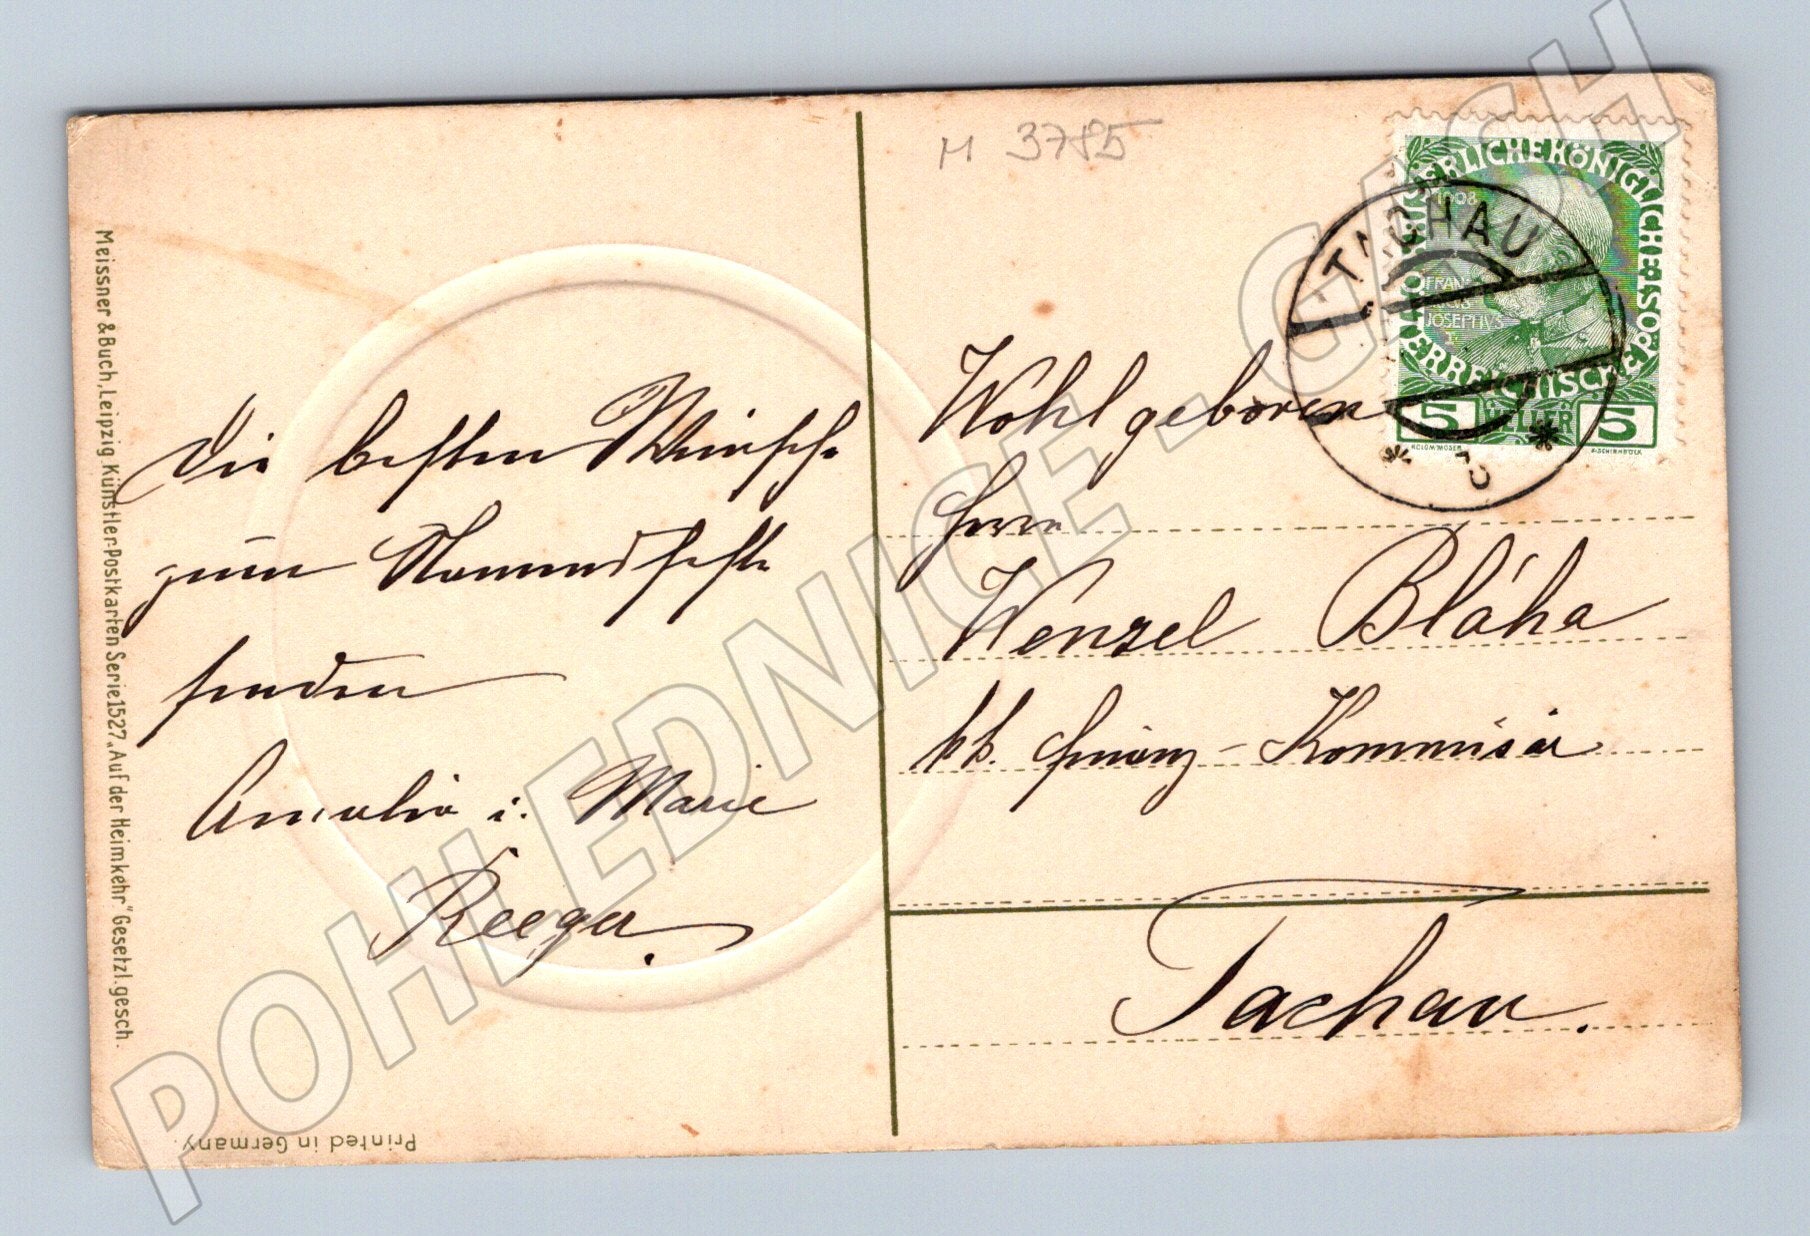 M 3785
Die besten Wünsche
zum Namensfeste
senden
Amalia u. Marie
Reeger.
Wohlgeboren
Herrn
Wenzel Bláha
kk. Finanz-Kommisär
Tachau.
TACHAU
KAISERLICHE KÖNIGLICHE ÖSTERREICHISCHE POST
1908
FRANZ
JOSEPHVS
5 HELLER 5
KOLOM. MOSER
F. SCHIRNBÖCK
Meissner & Buch, Leipzig Künstler-Postkarten Serie 1527 „Auf der Heimkehr" Gesetzl. gesch.
Printed in Germany.
POHLEDNICE.CASH